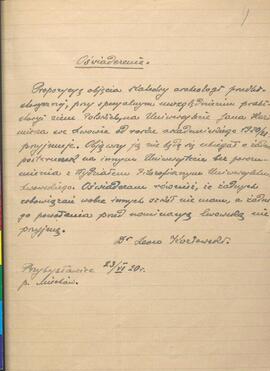 1
Oświadczenie.
Propozycję objęcia katedry archeologji przedhi-
storycznej, przy specjalnym uwzględnieniu prahi-
storji ziem Polskich na Uniwersytecie Jana Kazi-
mierza we Lwowie od roku akademickiego 1920/1
przyjmuję.
nie będę się ubiegał o
na innym Uniwersytecie bez porozu-
mienia z Wydziałem Filozoficznym Uniwersytetu
Lwowskiego. Oświadczam również, że żadnych
zobowiązań wobec innych nie mam, a żadne-
go powołania przed nominacją lwowską nie
przyjmę.
Dr Leon Kozłowski.
Przybysławice 23/VI 20 r.
p. Miechów.